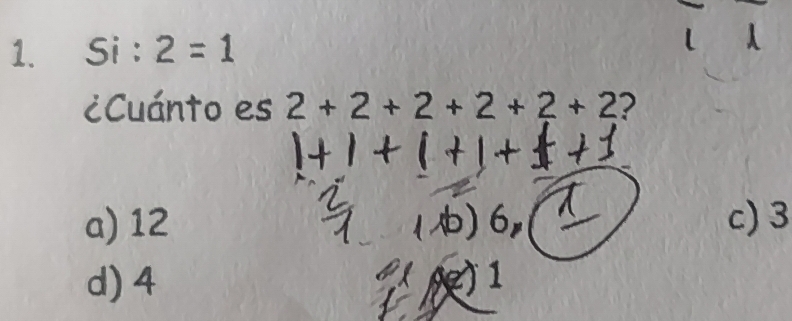 1. Si : 2 = 1
¿Cuánto es 2 + 2 + 2 + 2 + 2 + 2?
1 + 1 + 1 + 1 + 1 + 1
a) 12 b) 6 1 c) 3
d) 4 e) 1